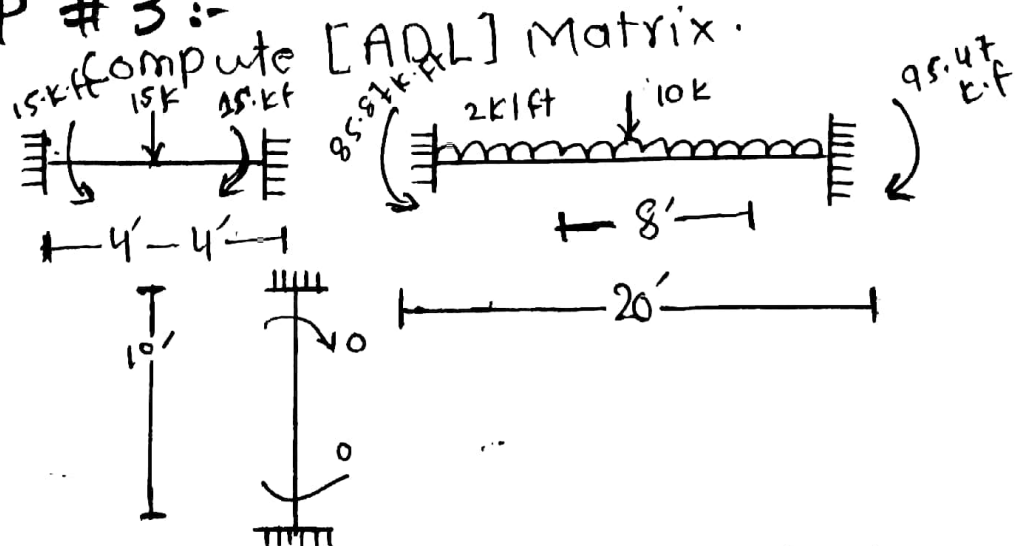 P # 3 :-
Compute [ADL] Matrix.
15.k.ft 15k 15.kf
85.87k.ft 2k/ft 10k 95.47 k.f
4' 4'
8'
20'
10'
0
0